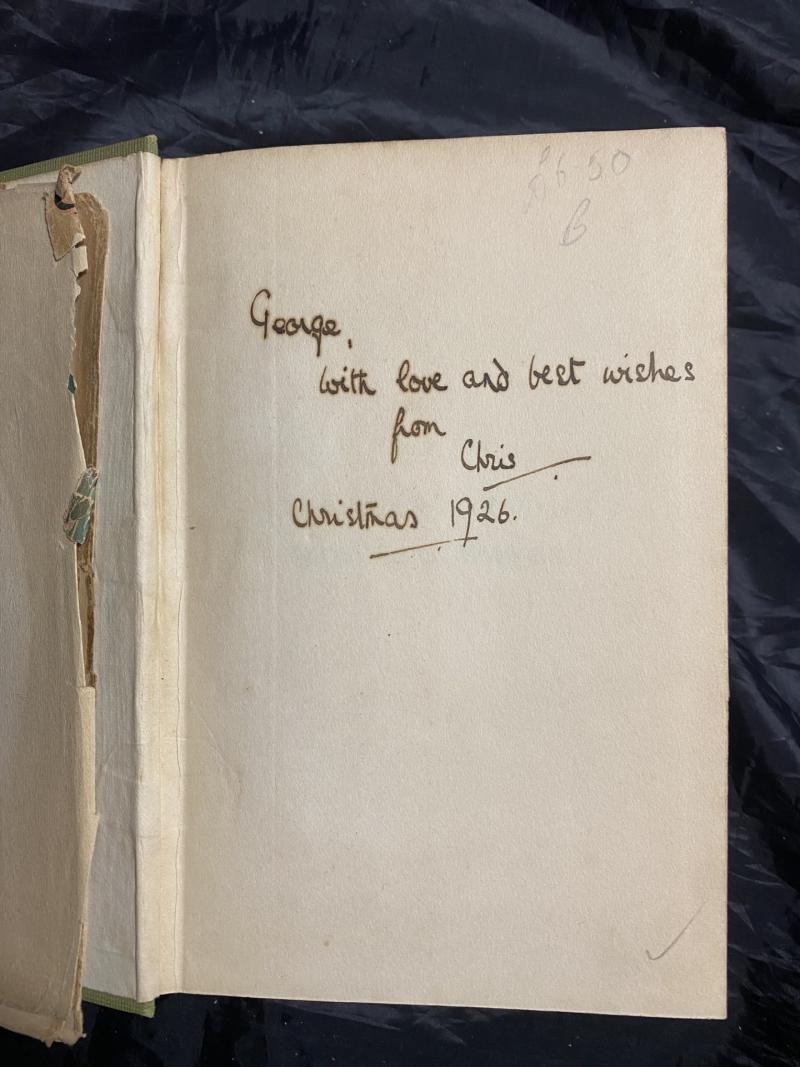 £6.50
B
George,
with love and best wishes
from
Chris
Christmas 1926.